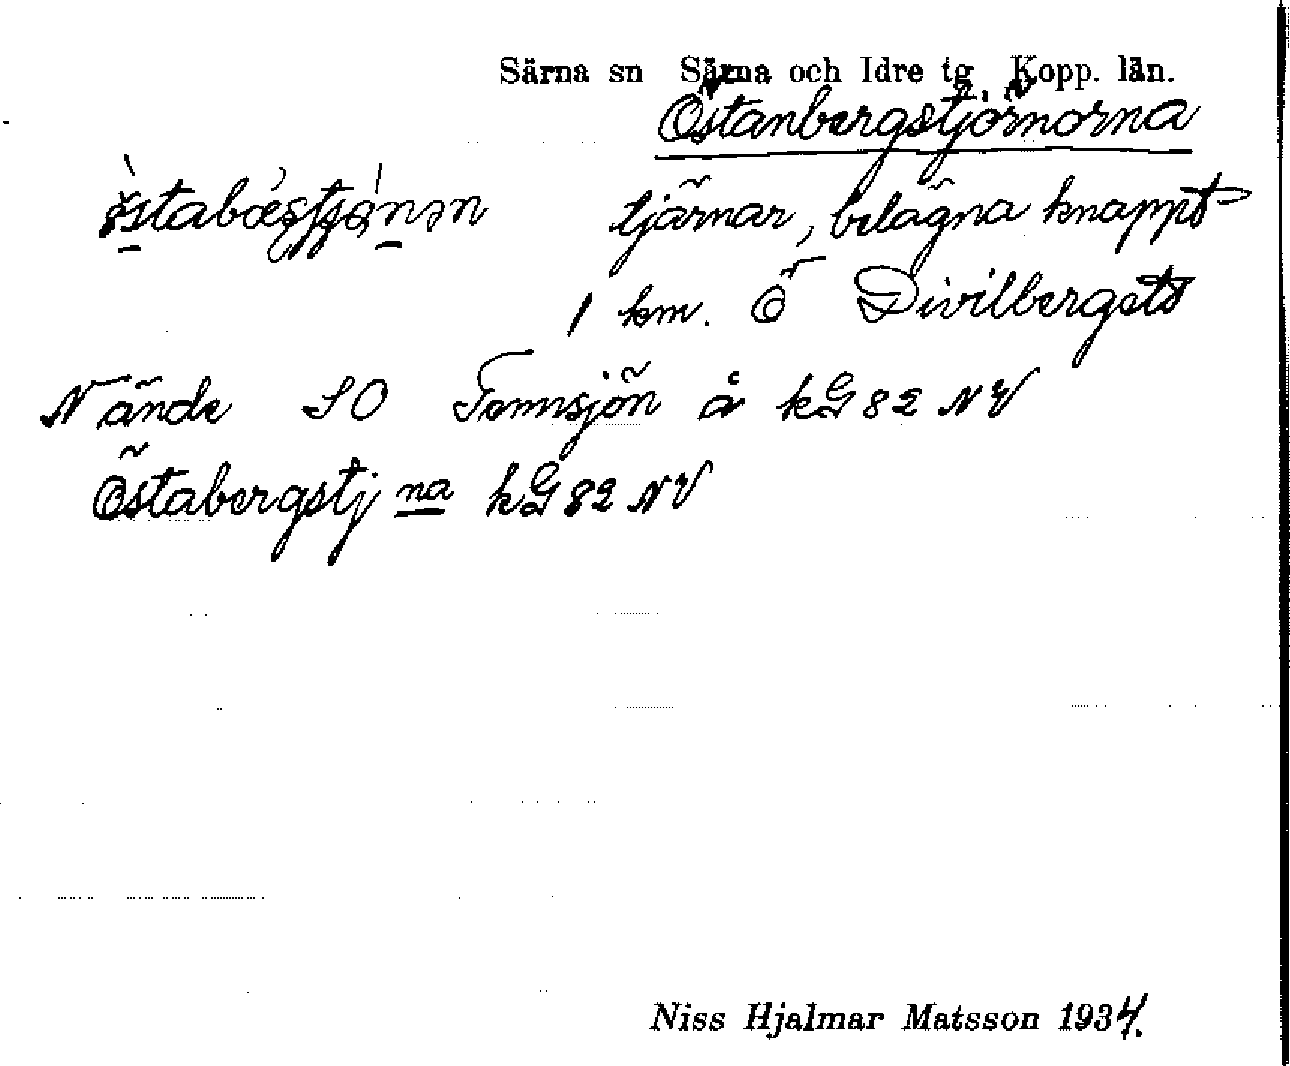 Särna sn Särna och Idre tg. Kopp. län.
Östanbergstjörnorna
tjärnar, belägna knappt
1 km. Ö Divilbergets
Nände SO Tennsjön å kG 82 NV
Östabergstj na kG 82 NV
Niss Hjalmar Matsson 1934.